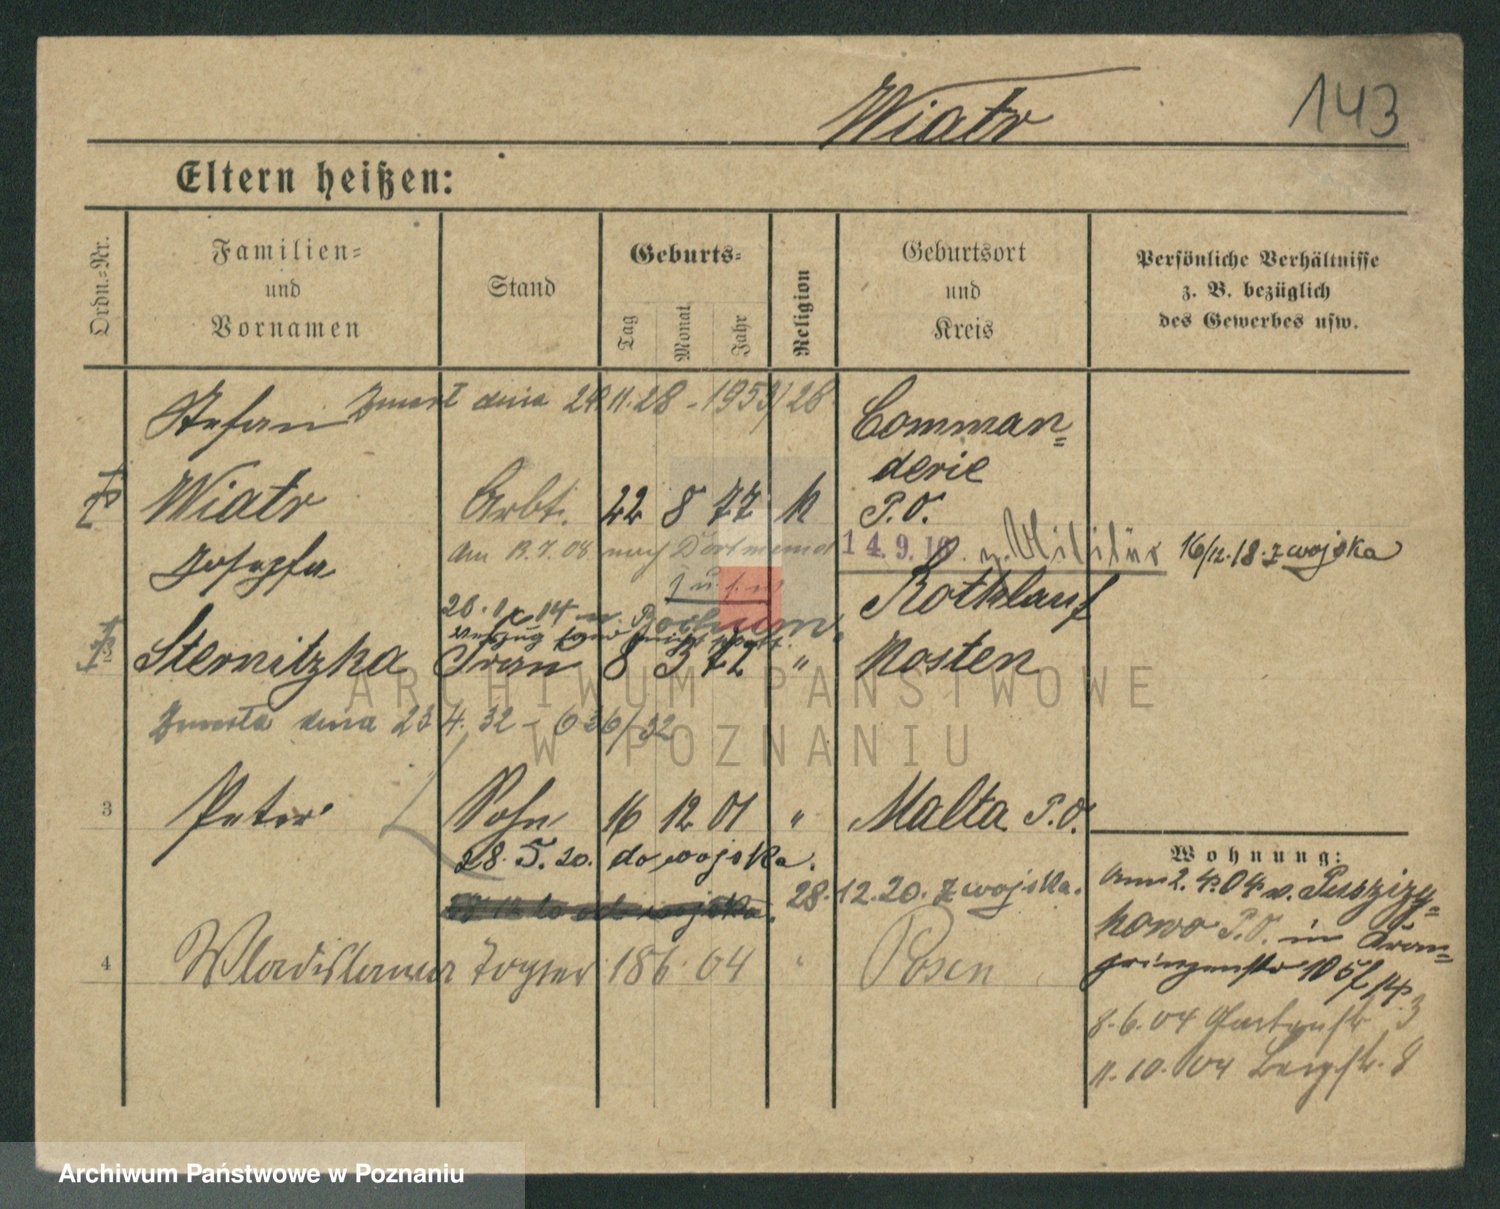 Wiatr 143
Eltern heißen:
Ordn.-Nr.
Familien-
und
Vornamen
Stand
Geburts-
Tag
Monat
Jahr
Religion
Geburtsort
und
Kreis
Persönliche Verhältnisse
z. B. bezüglich
des Gewerbes usw.
Stefan
Zmarł dnia 24 11. 28 - 1953/28
Comman-
derie
Wiatr Arbt. 22 8 77 k P.O.
Josepha
am 13.7.08 nach Dortmund
14.9.18. z. Militär 16/12.18. z wojska
Rothlauf
26.1.14 n. Bochum.
Sternitzka Frau 8 3 72 " Kosten
Zmarła dnia 23 4. 32 - 636/32
3 Peter Sohn 16 12 01 " Malta P.O.
28. 5. 20. do wojska.
28. 12. 20. z wojska.
4 Wladislawa Tochter 18 6 04 " Posen
Wohnung:
2.4.04 v. Puszczy-
kowo P.O. in Kron-
prinzenstr 105
8.6.04 Gartenstr 3
11.10.04 Bergstr. 8
ARCHIWUM PAŃSTWOWE
W POZNANIU
Archiwum Państwowe w Poznaniu